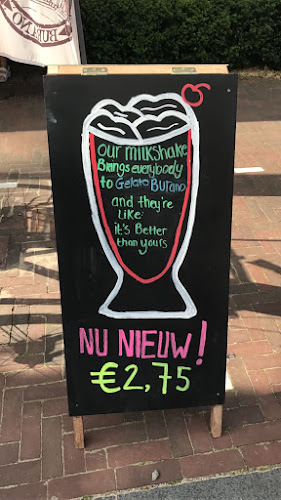 BURANO
our milkshake
Brings everybody
to Gelato Burano
and they're
Like:
it's Better
than yours
NU NIEUW!
€2,75